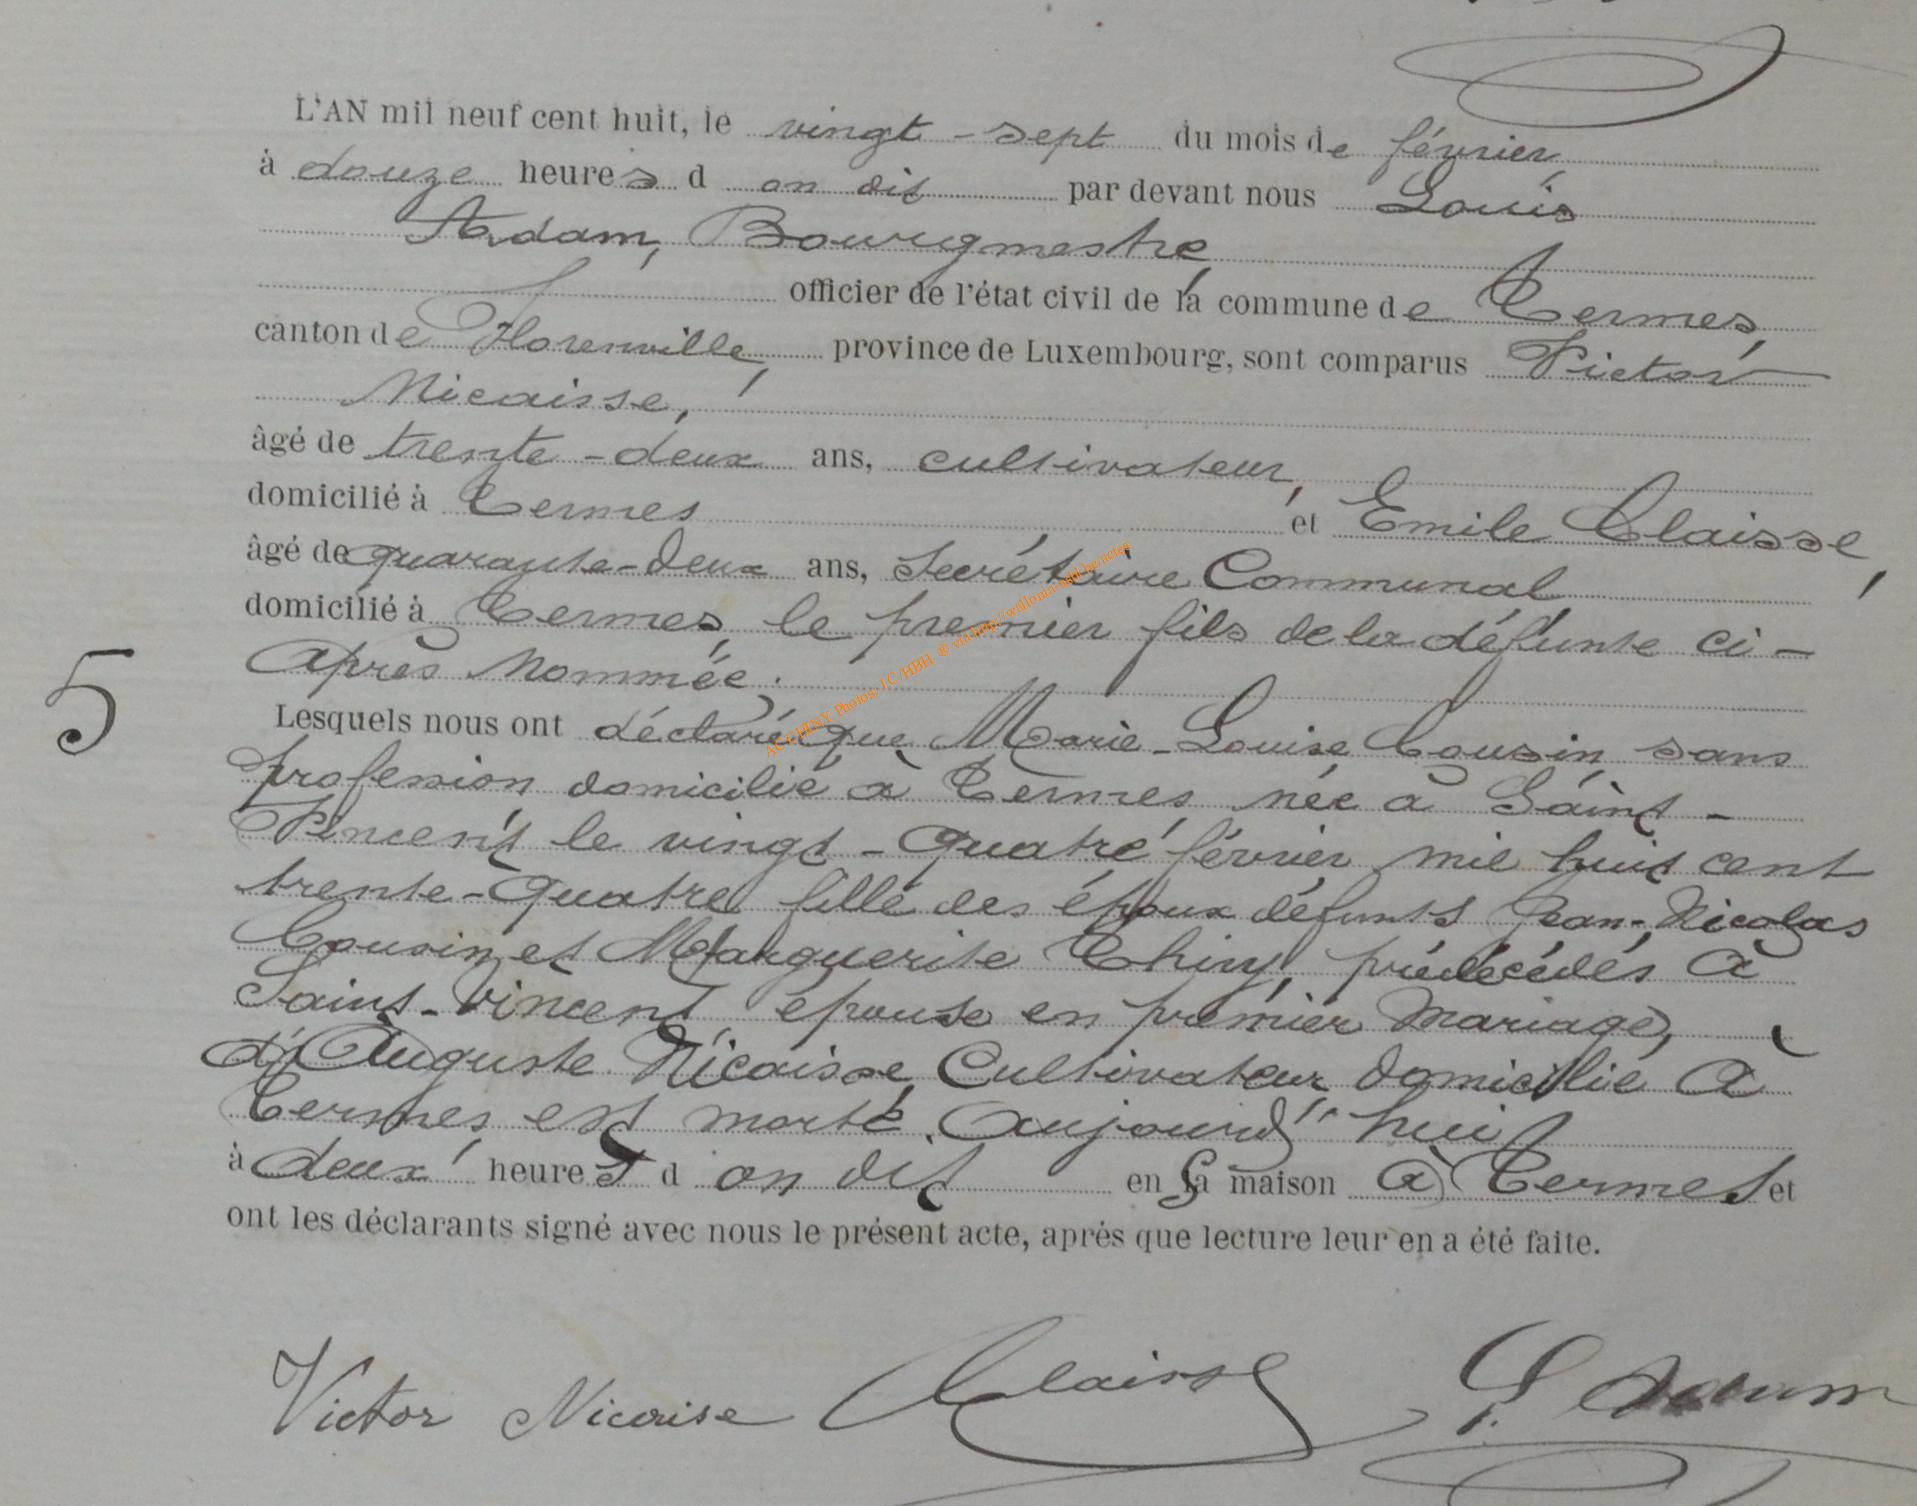 L'AN mil neuf cent huit, le vingt-sept du mois de février
à douze heures d on dit par devant nous Louis
Adam, Bourgmestre,
officier de l'état civil de la commune de Termes,
canton de Florenville, province de Luxembourg, sont comparus Victor
Nicaisse,
âgé de trente-deux ans, cultivateur,
domicilié à Termes et Emile Claisse,
âgé de quarante-deux ans, Secrétaire Communal
domicilié à Termes, le premier fils de la défunte ci-
Après Nommée;
5
Lesquels nous ont déclaré que Marie-Louise Cousin sans
profession domicilié à Termes née à Saint-
Vincent le vingt-quatre février mil huit cent
trente-quatre fille des époux défunts Jean-Nicolas
Cousin et Marguerite Thiry, prédécédés à
Saint-Vincent épouse en premier Mariage,
d'Auguste Nicaisse, Cultivateur domicilié à
Termes est morte Aujourd'hui
à deux heures d on dit en sa maison à Termes et
ont les déclarants signé avec nous le présent acte, après que lecture leur en a été faite.
Victor Nicaise Claisse L. Adam
AC CHINY Photos J.C/HBH @ via http://wallonia-asbl.be/actes